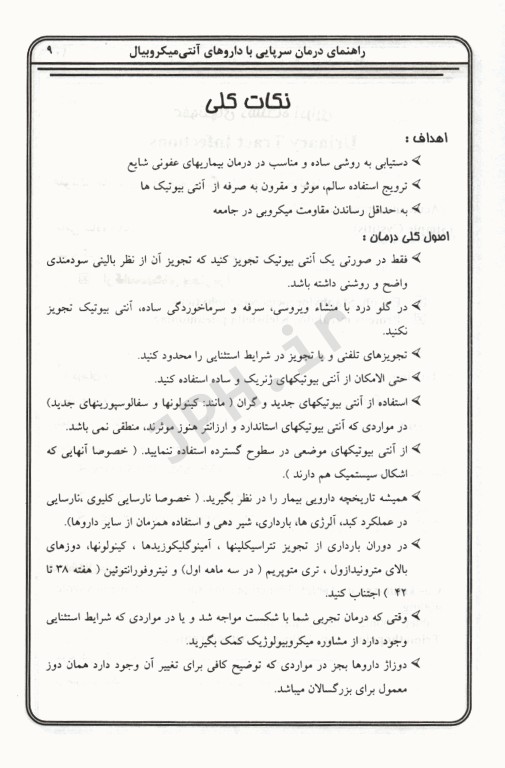 راهنمای درمان سرپایی با داروهای آنتی‌میکروبیال ۹
نکات کلی
اهداف :
➢ دستیابی به روشی ساده و مناسب در درمان بیماریهای عفونی شایع
➢ ترویج استفاده سالم، موثر و مقرون به صرفه از آنتی بیوتیک ها
➢ به حداقل رساندن مقاومت میکروبی در جامعه
اصول کلی درمان :
➢ فقط در صورتی یک آنتی بیوتیک تجویز کنید که تجویز آن از نظر بالینی سودمندی
واضح و روشنی داشته باشد.
➢ در گلو درد با منشاء ویروسی، سرفه و سرماخوردگی ساده، آنتی بیوتیک تجویز
نکنید.
➢ تجویزهای تلفنی و یا تجویز در شرایط استثنایی را محدود کنید.
➢ حتی الامکان از آنتی بیوتیکهای ژنریک و ساده استفاده کنید.
➢ استفاده از آنتی بیوتیکهای جدید و گران ( مانند: کینولونها و سفالوسپورینهای جدید)
در مواردی که آنتی بیوتیکهای استاندارد و ارزانتر هنوز موثرند، منطقی نمی باشد.
➢ از آنتی بیوتیکهای موضعی در سطوح گسترده استفاده ننمایید. ( خصوصا آنهایی که
اشکال سیستمیک هم دارند ).
➢ همیشه تاریخچه دارویی بیمار را در نظر بگیرید. ( خصوصا نارسایی کلیوی ،نارسایی
در عملکرد کبد، آلرژی ها، بارداری، شیر دهی و استفاده همزمان از سایر داروها).
➢ در دوران بارداری از تجویز تتراسیکلینها ، آمینوگلیکوزیدها ، کینولونها، دوزهای
بالای مترونیدازول ، تری متوپریم ( در سه ماهه اول) و نیتروفورانتوئین ( هفته ۳۸ تا
۴۲ ) اجتناب کنید.
➢ وقتی که درمان تجربی شما با شکست مواجه شد و یا در مواردی که شرایط استثنایی
وجود دارد از مشاوره میکروبیولوژیک کمک بگیرید.
➢ دوزاژ داروها بجز در مواردی که توضیح کافی برای تغییر آن وجود دارد همان دوز
معمول برای بزرگسالان میباشد.
JPH.ir